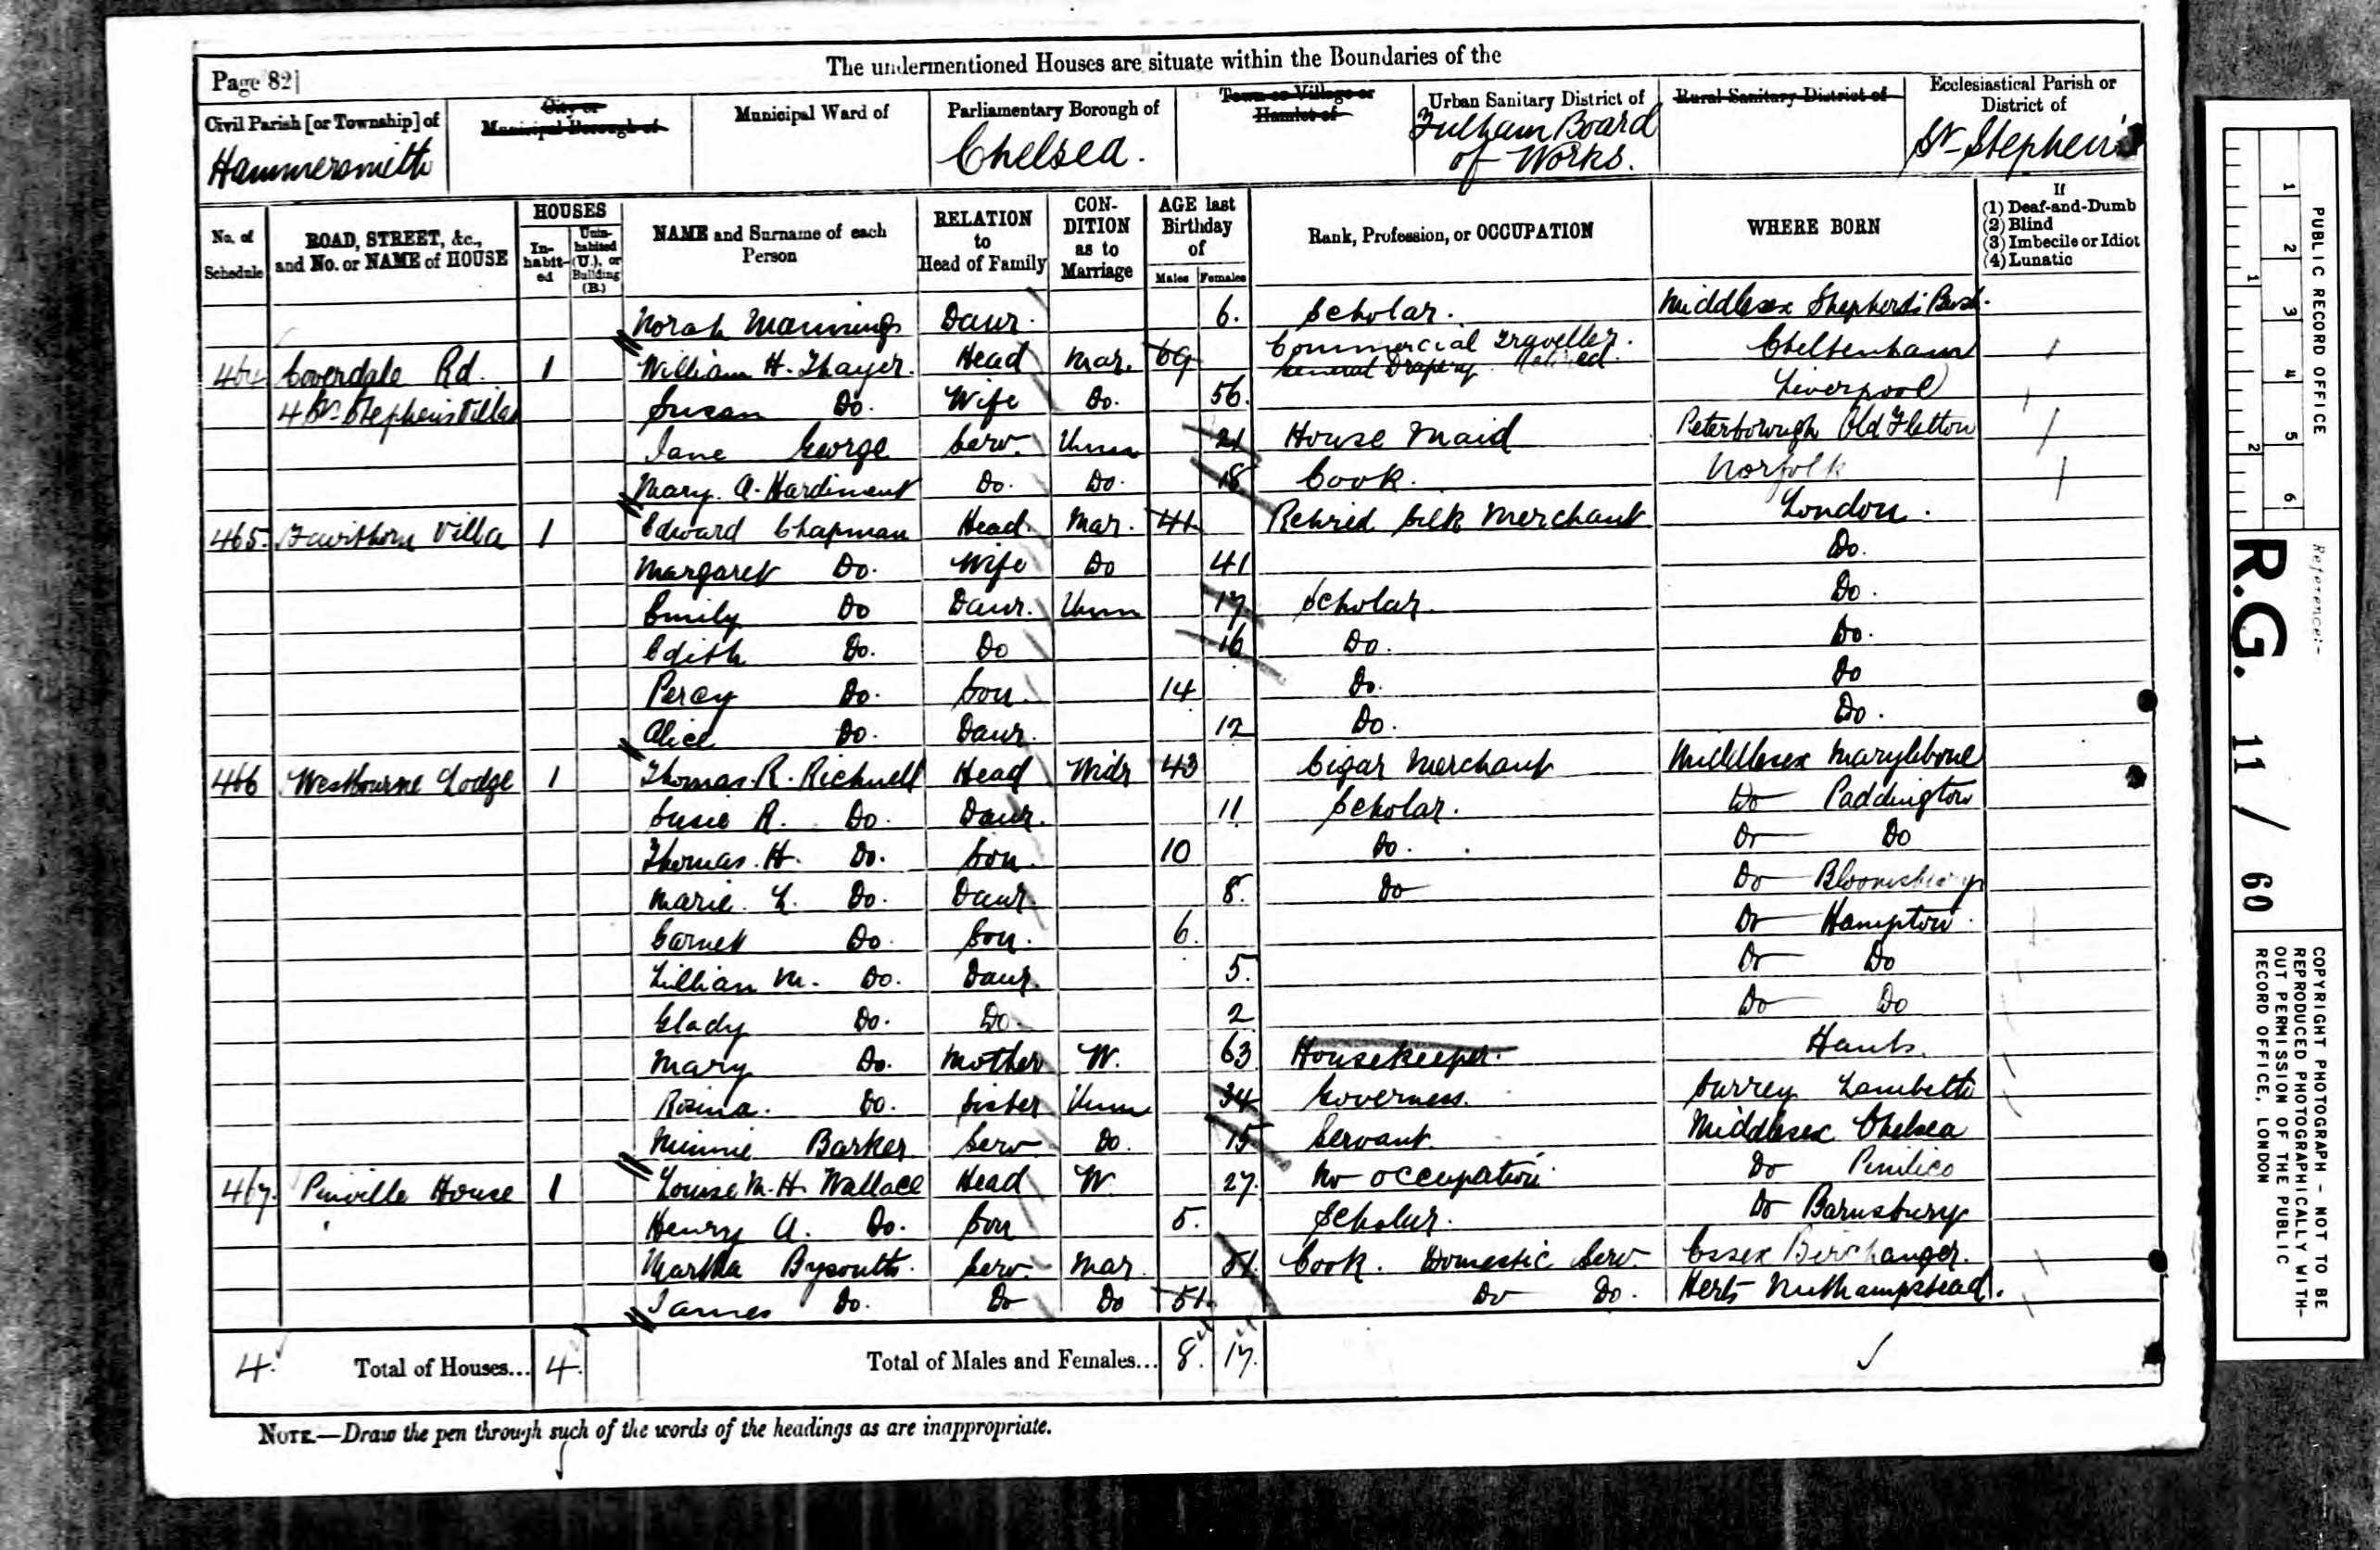 The undermentioned Houses are situate within the Boundaries of the
Page 82]
Civil Parish [or Township] of
Hammersmith
City or
Municipal Borough of
Municipal Ward of
Parliamentary Borough of
Chelsea.
Town or Village or
Hamlet of
Urban Sanitary District of
Fulham Board
of Works.
Rural Sanitary District of
Ecclesiastical Parish or
District of
St Stephen's
No. of
Schedule
ROAD, STREET, &c.,
and No. or NAME of HOUSE
HOUSES
In-
habit-
ed
Unin-
habited
(U.), or
Building
(B.)
NAME and Surname of each
Person
RELATION
to
Head of Family
CON-
DITION
as to
Marriage
AGE last
Birthday
of
Males Females
Rank, Profession, or OCCUPATION
WHERE BORN
If
(1) Deaf-and-Dumb
(2) Blind
(3) Imbecile or Idiot
(4) Lunatic
Norah Mannings Daur. 6. Scholar. Middlesex Shepherds Bush.
464 Coverdale Rd. 1 William H. Thayer. Head Mar. 69 Commercial Traveller. Cheltenham
General Drapery Retired.
4 St. Stephens Villas Susan Do. Wife Do. 56. Liverpool
Jane George Serv. Unm 21 House Maid Peterborough Old Fletton
Mary. A. Hardiment Do. Do. 18 Cook. Norfolk
465. Villa 1 Edward Chapman Head. Mar. 41 Retired Silk Merchant London.
Margaret Do. Wife Do 41 Do.
Emily Do Daur. Unm 17. Scholar. Do.
Edith Do. Do 16 Do. Do.
Percy Do. Son. 14 Do. Do
Alice Do. Daur. 12 Do. Do.
466 Westbourne Lodge 1 Thomas. R. Richnell Head Widr 43 Cigar Merchant Middlesex Marylebone
Susie R. Do. Daur. 11 Scholar. Do Paddington
Thomas. H. Do. Son. 10 Do. Do Do
Marie. L. Do. Daur. 8. Do Do Bloomsbury
Garnet Do. Son. 6. Do Hampton.
Lillian M. Do. Daur. 5. Do Do
Glady Do. Do. 2 Do Do
Mary Do. Mother W. 63 Housekeeper. Hants.
Rosina. Do. Sister Unm 34 Governess. Surrey Lambeth
Minnie Barker Serv Do. 15 Servant. Middlesex Chelsea
467. Pinville House 1 Louise M. H. Wallace Head W. 27. No occupation. Do Pimlico
Henry A. Do. Son 5. Scholar. Do Barnsbury
Martha Bysouth. Serv. Mar. 51. Cook. Domestic Serv. Essex Birchanger.
James Do. Do Do 51. Do Do. Herts Nuthampstead.
4. Total of Houses... 4. Total of Males and Females... 8. 17.
NOTE.—Draw the pen through such of the words of the headings as are inappropriate.
PUBLIC RECORD OFFICE
1 2 3 4 5 6
1 2
Reference:-
R.G. 11 / 60
COPYRIGHT PHOTOGRAPH - NOT TO BE
REPRODUCED PHOTOGRAPHICALLY WITH-
OUT PERMISSION OF THE PUBLIC
RECORD OFFICE, LONDON